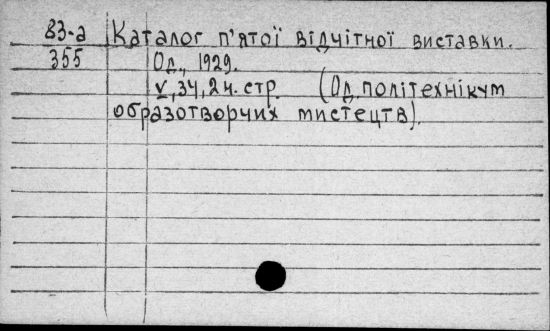 83-а Каталог п'ятої відчітної виставки.
355 Од., 1929.
V, 34, 2 н. стр. (Од. політехнікум
образотворчих мистецтв).